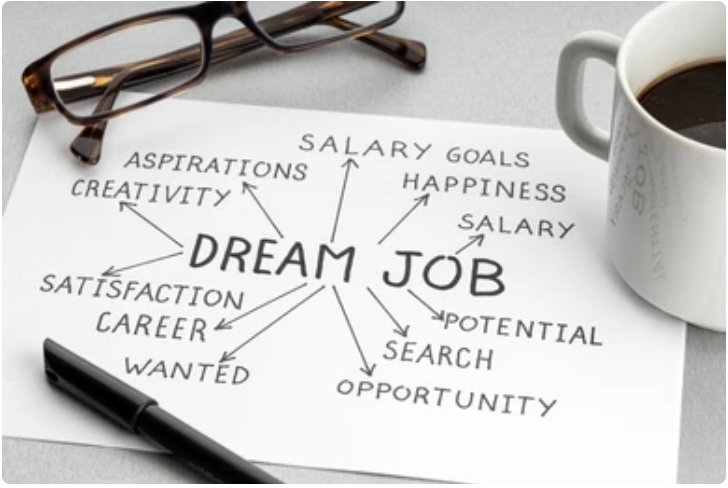 SALARY GOALS
ASPIRATIONS
HAPPINESS
CREATIVITY
SALARY
DREAM JOB
SATISFACTION
POTENTIAL
CAREER
SEARCH
WANTED
OPPORTUNITY
JOB